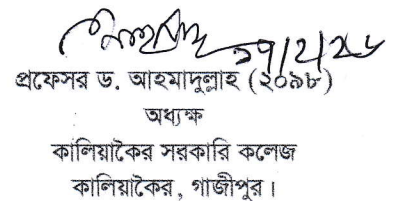 ১৭/২/২৬
প্রফেসর ড. আহমাদুল্লাহ (২০৯৮)
অধ্যক্ষ
কালিয়াকৈর সরকারি কলেজ
কালিয়াকৈর, গাজীপুর।